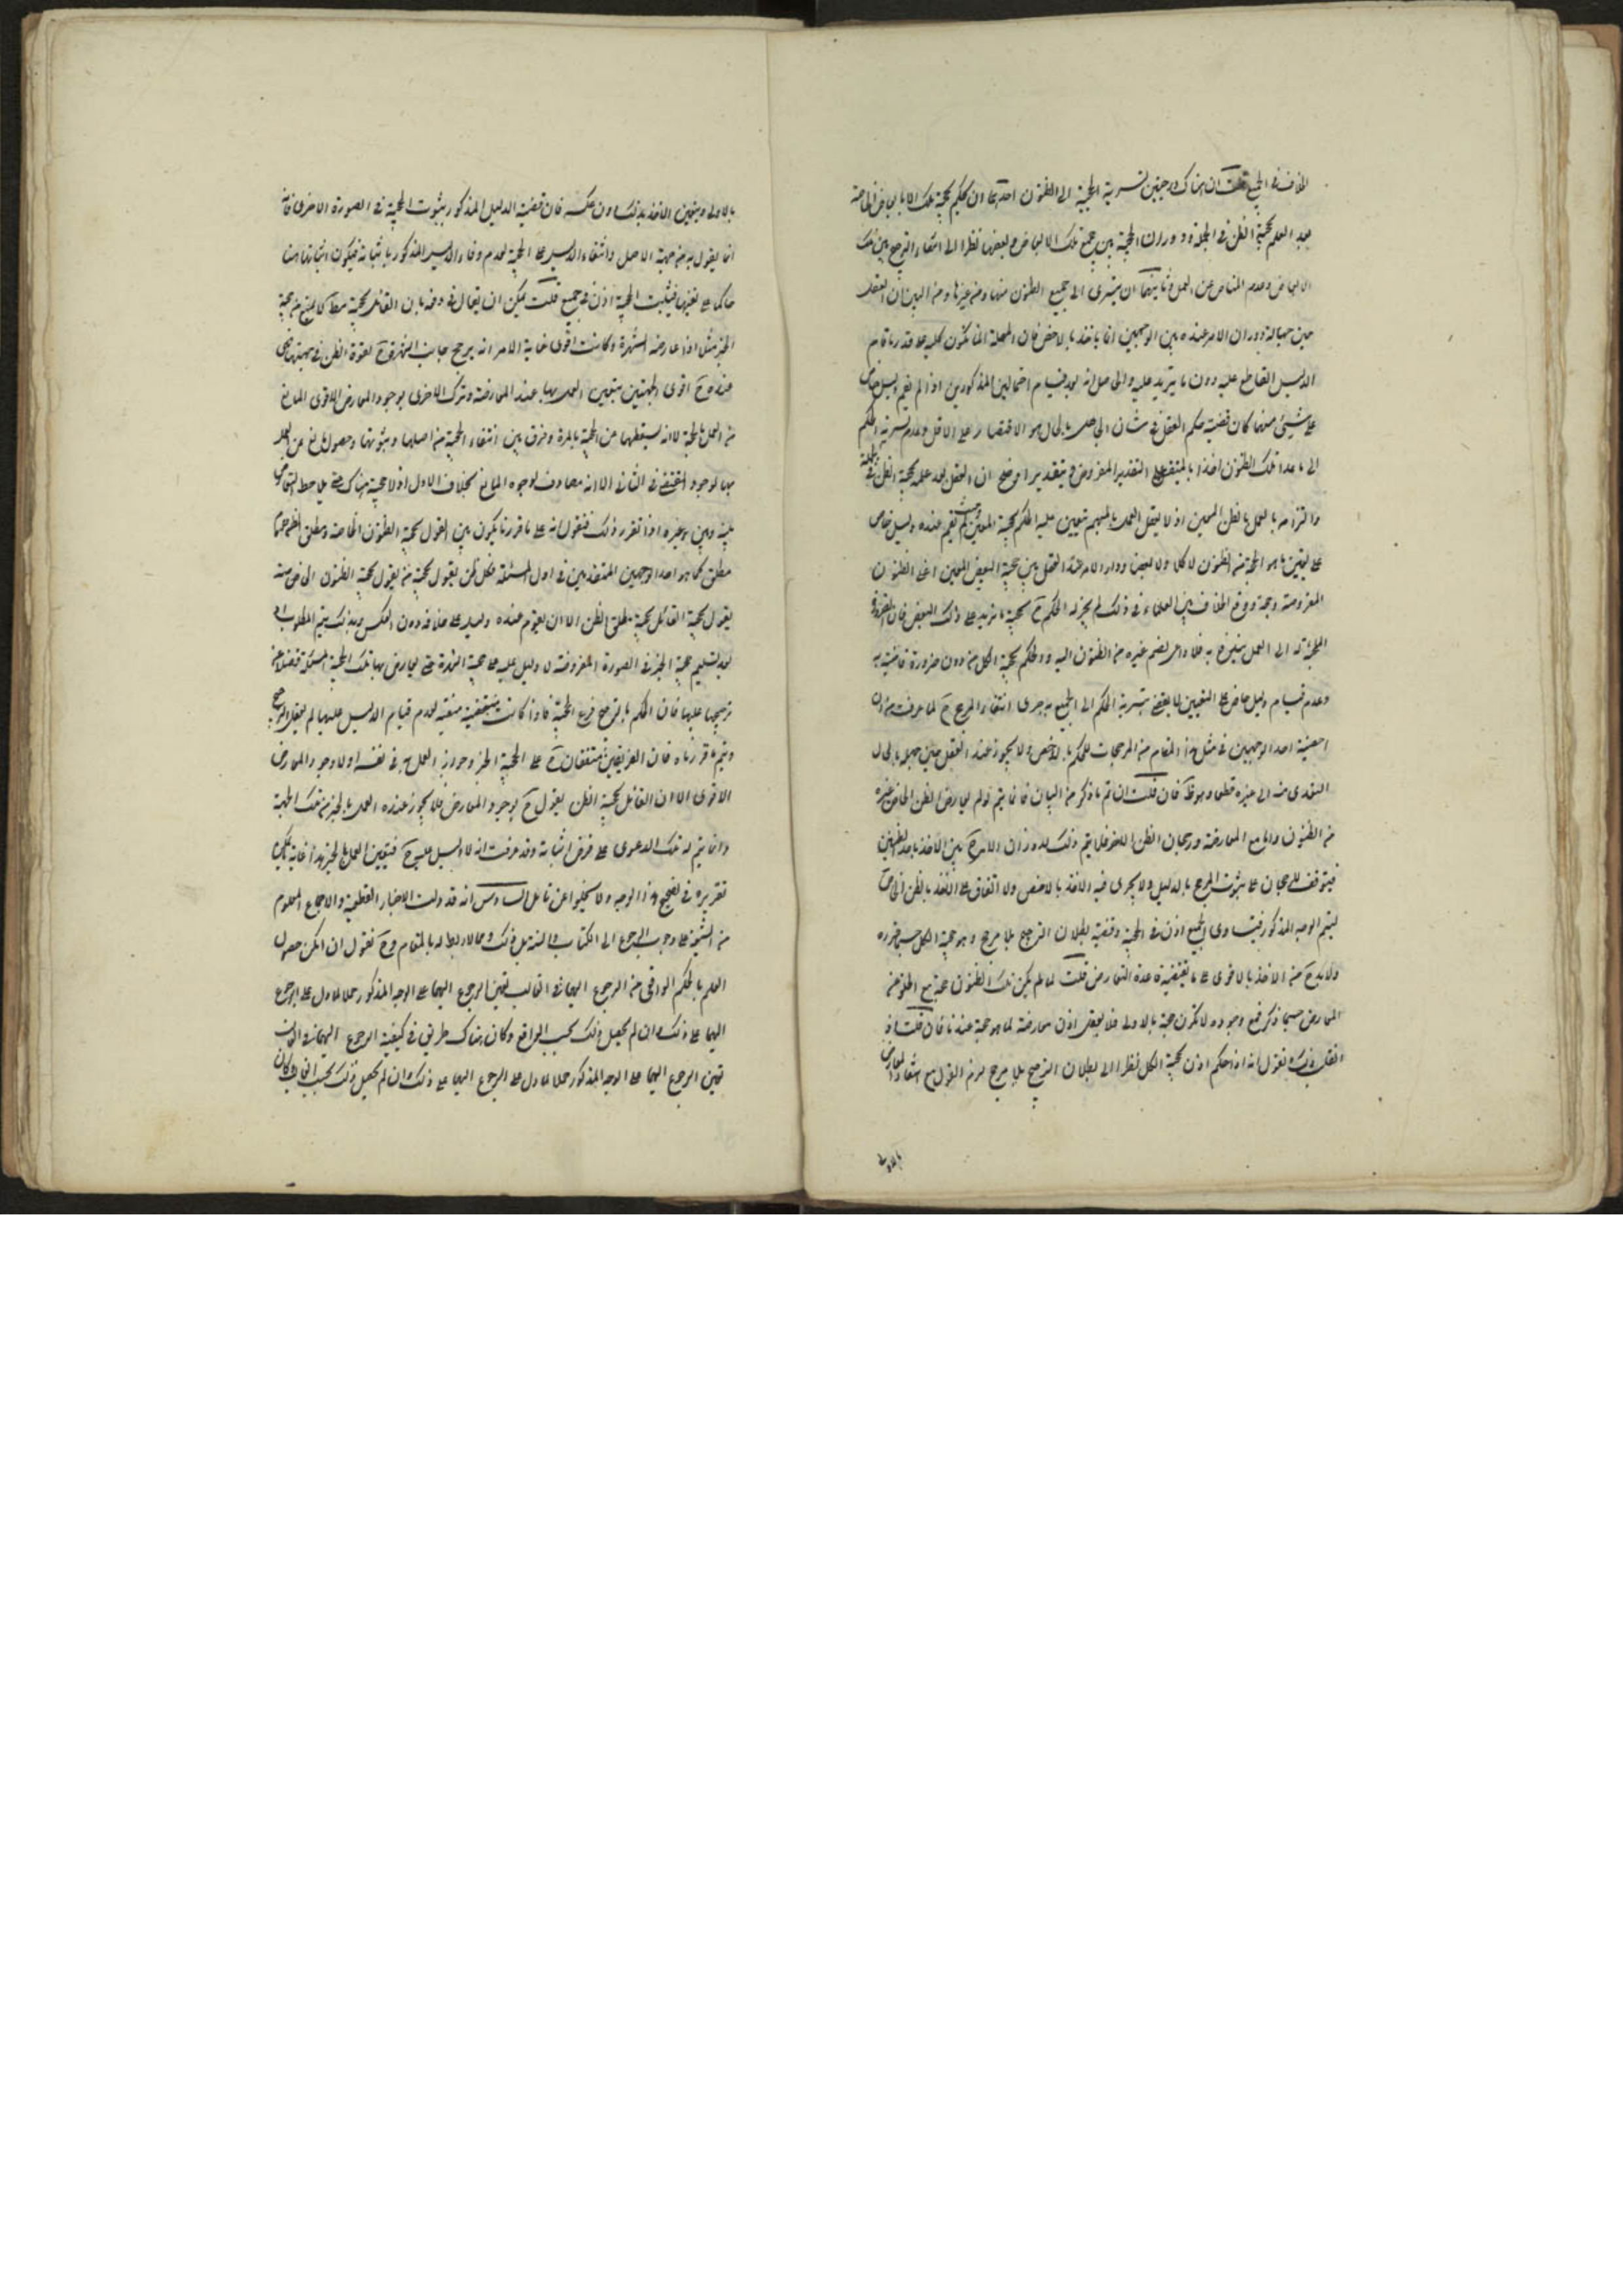 الخلاف في الجميع قلت ان هناك درجتين لتسرية الحجية الى الظنون احدهما ان يحكم بحجية تلك الابعاض الخاصة
بعد العلم بحجية الظن في الجملة ودوران الحجية بين جميع تلك الابعاض وبعضها نظرا الى انتفاء الترجيح بين تلك
الابعاض وعدم المناص عن العمل وثانيهما ان يتسرى الى جميع الظنون منها ومن غيرها ومن البين ان العقل
حين جهالة ودوران الامر عنده بين الوجهين انما ياخذ بالاخص فان المهملة انما تكون كلية على قدر ما قام
الدليل القاطع عليه دون ما يزيد عليه والحاصل انه بعد قيام احتمالين المذكورين اذا لم يقم دليل خاص
على شيئ منهما كان قضية حكم العقل في شان الجاهل بالحال هو الاقتصار على الاقل وعدم تسرية الحكم
الى ما عدا تلك الظنون اخذا بالمتيقن على التقدير المفروض وبتقدير اوضح ان العقل بعد علمه بحجية الظن في الجملة
والتزامه بالعمل بالظن المعين اذ لا يعقل العمل بالمبهم تعيين عليه الحكم بحجية المعين وحيث لم يقم عنده دليل خاص
على تعيين ما هو الحجة من الظنون لا كلا ولا بعضا ودار الامر عند العقل بين حجية البعض المعين اعني الظنون
المفروضة وجهة وقوع الخلاف بين العلماء في ذلك لم يجز له الحكم ح بحجية ما يزيد على ذلك البعض فان الضرورة
الملجئة له الى العمل يندفع به فلا داعى لضم غيره من الظنون اليه والحكم بحجية الكل من دون ضرورة قاضية به
وعدم قيام دليل خاص على التعيين لا يقضى بتسرية الحكم الى الجميع بدعوى انتفاء المرجح ح لما عرفت من ان
اخصية احد الوجهين في مثل هذا المقام من المرجحات للحكم بالاخص ولا يجوز عند العقل حين جهله بالحال
التعدى منه الى غيره قطعا وهو ظ فان قلت ان تم ما ذكر من البيان فانما يتم لو لم يعارض الظن الخاص غيره
من الظنون واما مع المعارضة ورجحان الظن الاخر فلا يتم ذلك لدوران الامر ح بين الاخذ باحد الظنين
فيتوقف الرجحان على ثبوت المرجح بالدليل ولا يجرى فيه الاخذ بالاخص ولا اتفاق على الاخذ بالظن الخاص
ليتم الوجه المذكور فيتساوى الجميع اذن في الحجية وقضية بطلان الترجيح بلا مرجح وهو حجية الكل حسبما قرره
ولا بد ح من الاخذ بالاقوى على ما يقتضيه قاعدة التعارض قلت لما لم يكن تلك الظنون حجة مع الخلو عن
المعارض حسبما ذكر فمع وجوده لا تكون حجة بالاولى فلا يعقل اذن معارضة لما هو حجة عندنا فان قلت اذ
نقلب ونقول انه اذا حكم اذن بحجية الكل نظرا الى بطلان الترجيح بلا مرجح لزم القول مع انتفاء المعارض
بالاولى
بالاولى ويتعين الاخذ بذلك دون عكسه فان قضية الدليل المذكور ثبوت الحجية في الصورة الاخرى فانه
انما يقول به من جهة الاصل وانتفاء الدليل على الحجية لعدم وفاء الدليل المذكور باثباته فيكون اثباتها هنا
حاكما على نفيها فيثبت الحجية اذن في جميع قلت يمكن ان يقال في دفعه بان القائل بحجية مط كالمنع من حجية
الخبر مثلا اذا عارضه الشهرة وكانت اقوى غاية الامر انه يرجح جانب الشهرة ح لقوة الظن في جهتها فهي
عنده ح اقوى الجهتين يتعين العمل بها عند المعارضة وترك الاخرى لوجود المعارض الاقوى المانع
من العمل بالحجة لا انه يسقطها عن الحجية بالمرة وفرق بين انتفاء الحجية من اصلها وثبوتها وحصول مانع عن العمل
بها لوجود المقتضى في الثاني الا انه مصادف لوجود المانع بخلاف الاول اذ لا حجية هناك حتى يلاحظ التعارض
بينه وبين غيره اذا تقرر ذلك فنقول انه على ما قررنا يكون بين القول بحجية الظنون الخاصة ومطلق الظن عموما
مطلق كما هو احد الوجهين المتقدمين في اول المسئلة فكل من يقول بحجية من يقول بحجية الظنون الخاصة
يقول بحجية القائل بحجية مطلق الظن الا ان يقوم عنده دليل على خلافه دون العكس وبذلك يتم المطلوب اذ
بعد تسليم حجية الخبر في الصورة المفروضة لا دليل عليه على حجية الشهرة حتى يعارض بها تلك الحجة المسئلة فضلا عن
ترجيحها عليها فان الحكم بالترجيح فرع الحجية فاذا كانت منتفية لعدم قيام الدليل عليها لم يعقل الترجيح
ويتم ما قررناه فان الفريقين متفقان ح على الحجية الخبر وجواز العمل به في نفسه لولا وجود المعارض
الاقوى الا ان القائل بحجية الظن يقول ح بوجود المعارض فلا يجوز عنده العمل بالخبر من تلك الجهة
وانما يتم له تلك الدعوى على فرض اثباته وقد عرفت انه لا دليل عليه ح فيتعين العمل بالخبر هذا غاية ما يمكن
تقريره في تصحيح هذا الوجه ولا يخلوا عن تامل السادس انه قد دلت الاخبار القطعية والاجماع المعلوم
من الشيعة على وجوب الرجوع الى الكتاب والسنة بل ذلك مما لا ريب له بالمقام وح نقول ان امكن حصول
العلم بالحكم الواقعى من الرجوع اليهما في الغالب تعين الرجوع اليهما على الوجه المذكور حملا لما دل على الرجوع
اليهما على ذلك وان لم يحصل ذلك بحسب الواقع وكان هناك طريق في كيفية الرجوع اليهما
تعين الرجوع اليهما على الوجه المذكور حملا لما دل على الرجوع اليهما على ذلك وان لم يحصل ذلك بحسب وكان